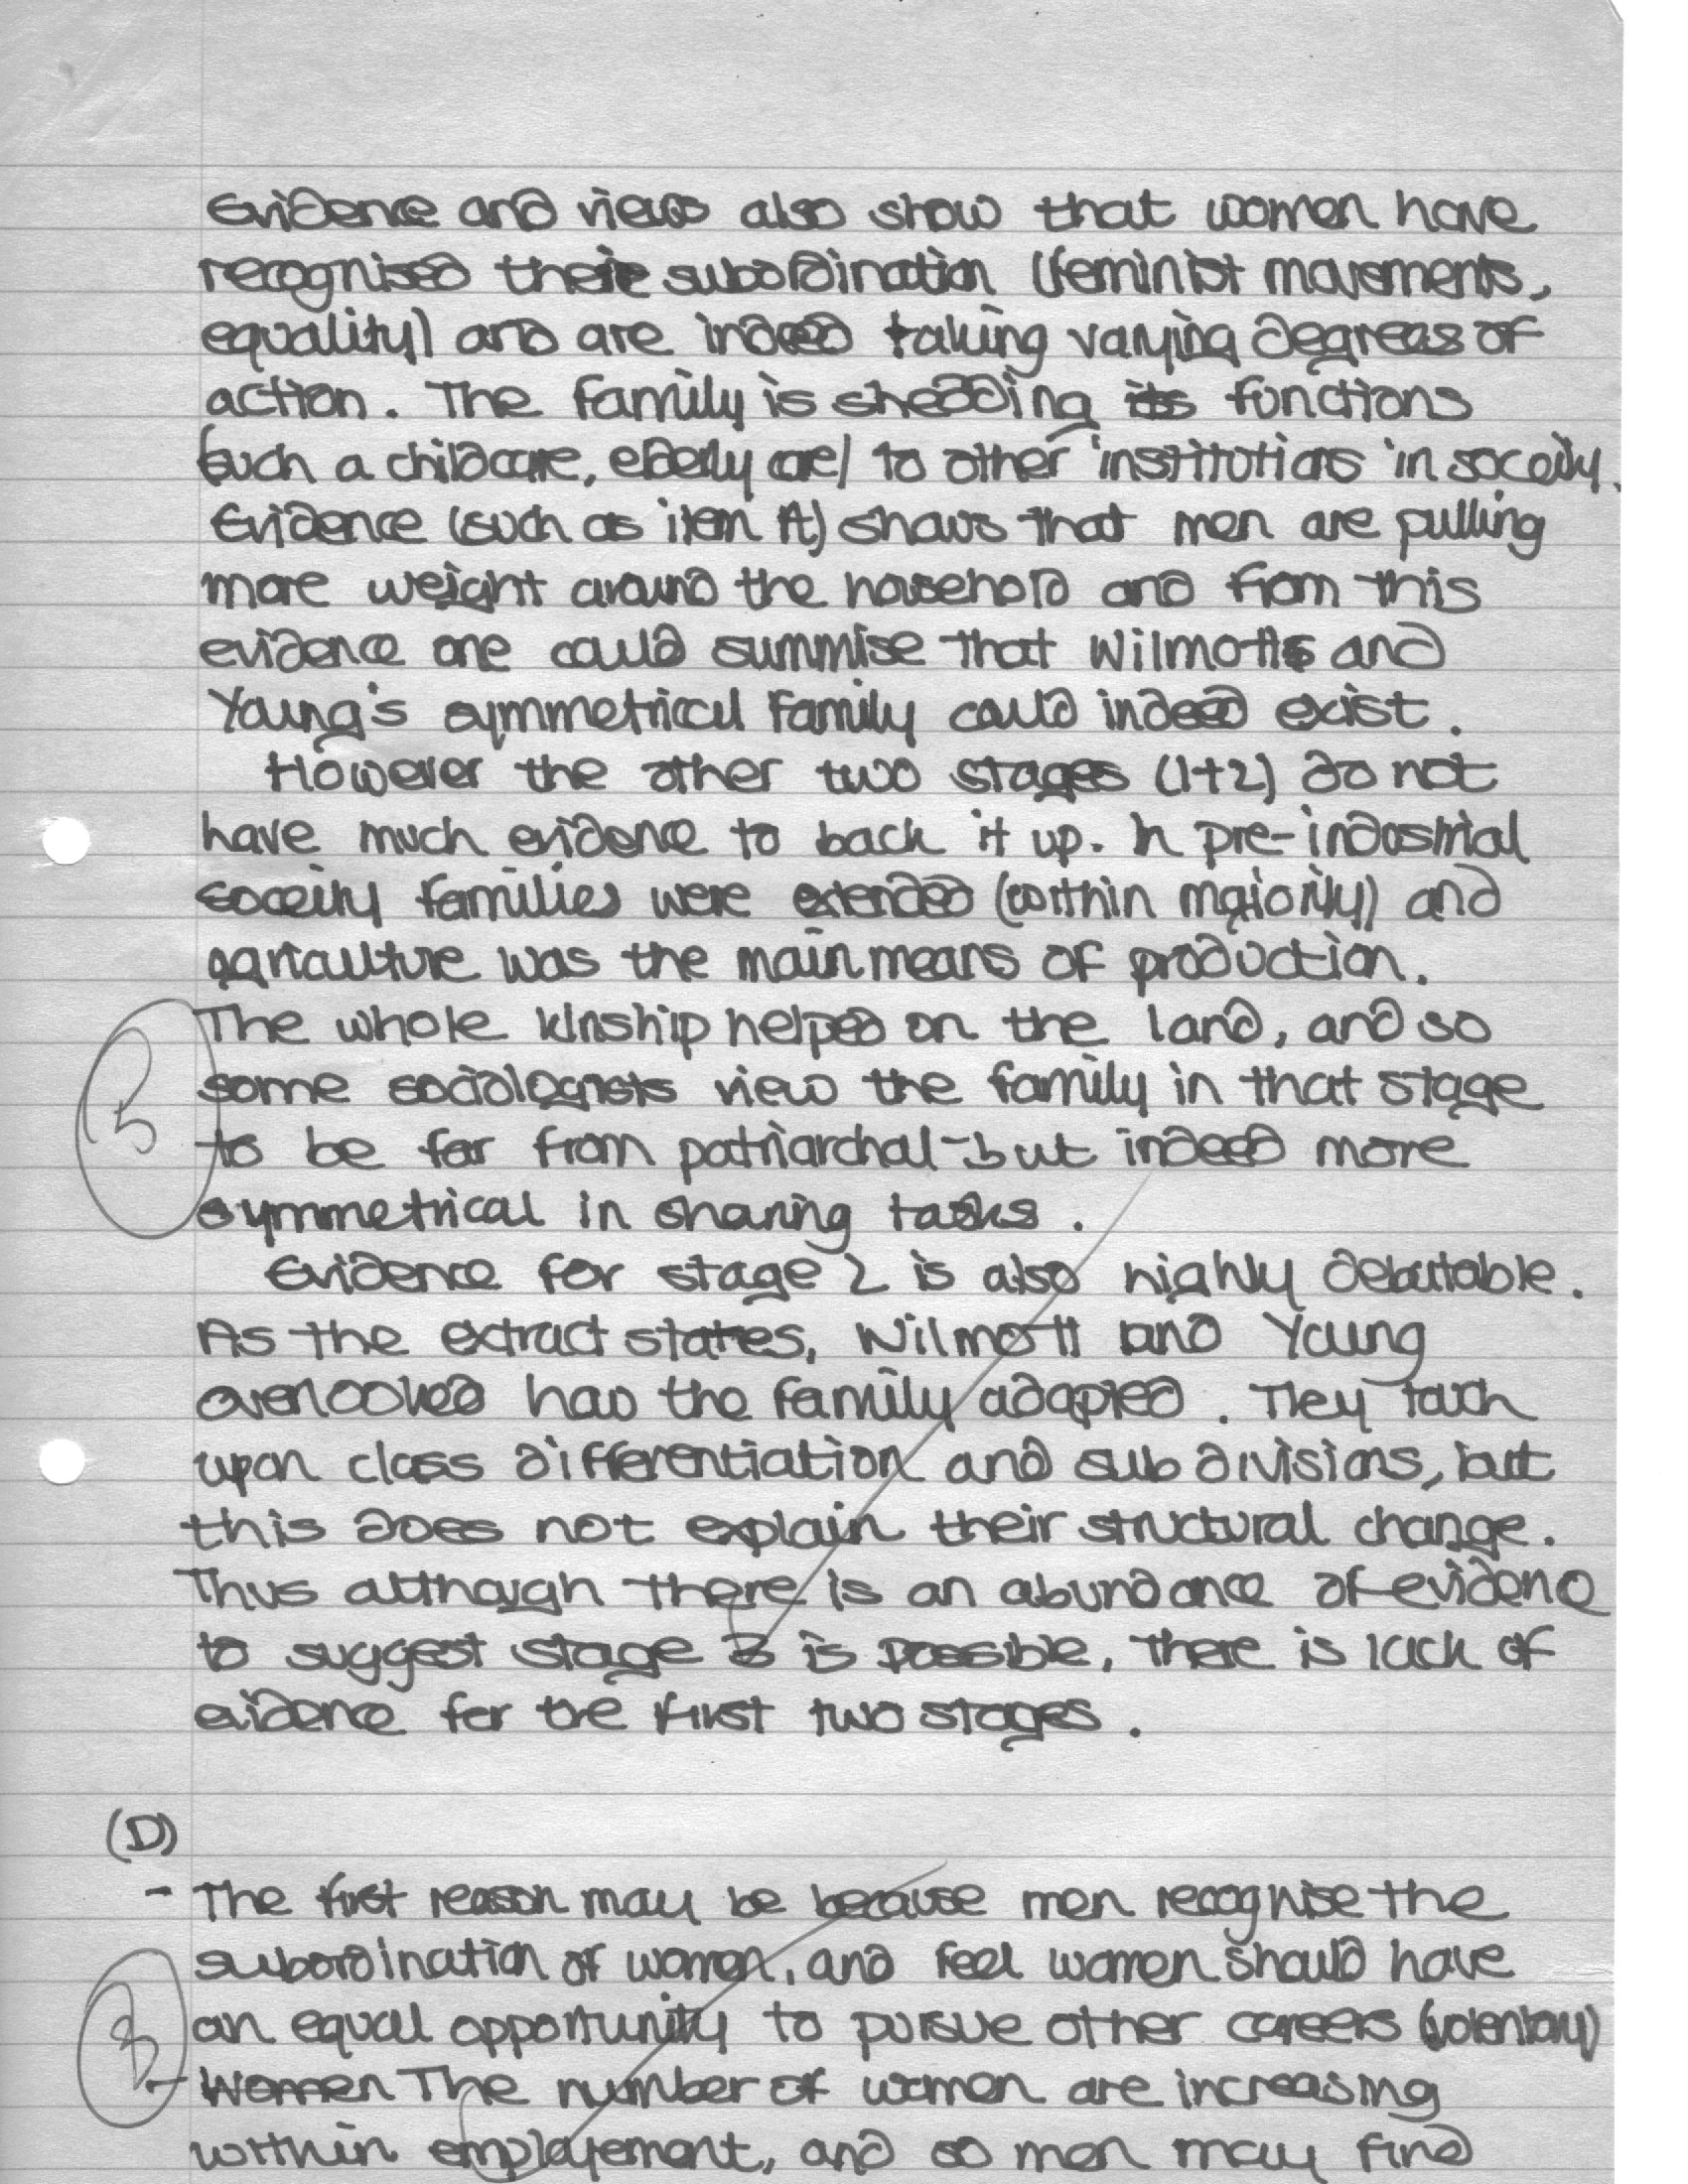 Evidence and views also show that women have
recognised their subordination (feminist movements,
equality) and are indeed taking varying degrees of
action. The family is shedding its functions
(such a childcare, elderly care) to other institutions in soceity.
Evidence (such as item A) shows that men are pulling
more weight around the household and from this
evidence one could summise that Wilmotts and
Young's symmetrical family could indeed exist.
However the other two stages (1+2) do not
have much evidence to back it up. In pre-industrial
soceity families were extended (within majority) and
agriculture was the main means of production.
The whole kinship helped on the land, and so
some sociologists view the family in that stage
to be far from patriarchal - but indeed more
symmetrical in sharing tasks.
Evidence for stage 2 is also highly debatable.
As the extract states, Wilmott and Young
overlooked how the family adapted. They touch
upon class differentiation and sub divisions, but
this does not explain their structural change.
Thus although there is an abundance of evidence
to suggest stage 3 is possible, there is lack of
evidence for the first two stages.
(D)
- The first reason may be because men recognise the
subordination of women, and feel women should have
an equal opportunity to pursue other careers (volentary)
- Women The number of women are increasing
within employement, and so men may find